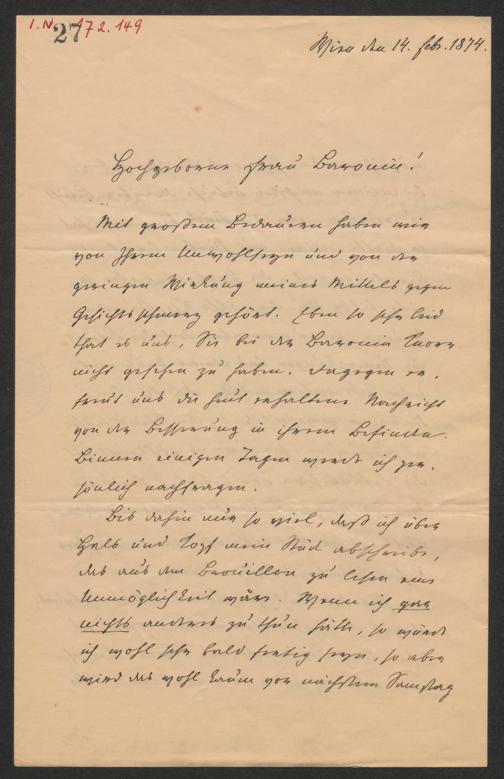 I.N. 172.149
27
Wien den 14. Feb. 1874.
Hochgeborne Frau Baronin!
Mit großem Bedauern haben wir
von Ihrem Unwohlseyn und von der
geringen Wirkung meines Mittels gegen
Gesichtsschmerz gehört. Eben so sehr leid
that es uns, Sie bei der Baronin
nicht gesehen zu haben. Dagegen er-
freut uns die heut erhaltene Nachricht
von der Besserung in ihrem Befinden.
Binnen einigen Tagen werde ich per-
sönlich nachfragen.
Bis dahin nur so viel, daß ich über
Hals und Kopf mein Stück abschreibe,
das aus dem Brouillon zu lesen eine
Unmöglichkeit wäre. Wenn ich gar
nichts anderes zu thun hätte, so würde
ich wohl sehr bald fertig seyn, so aber
wird das wohl kaum vor nächstem Samstag